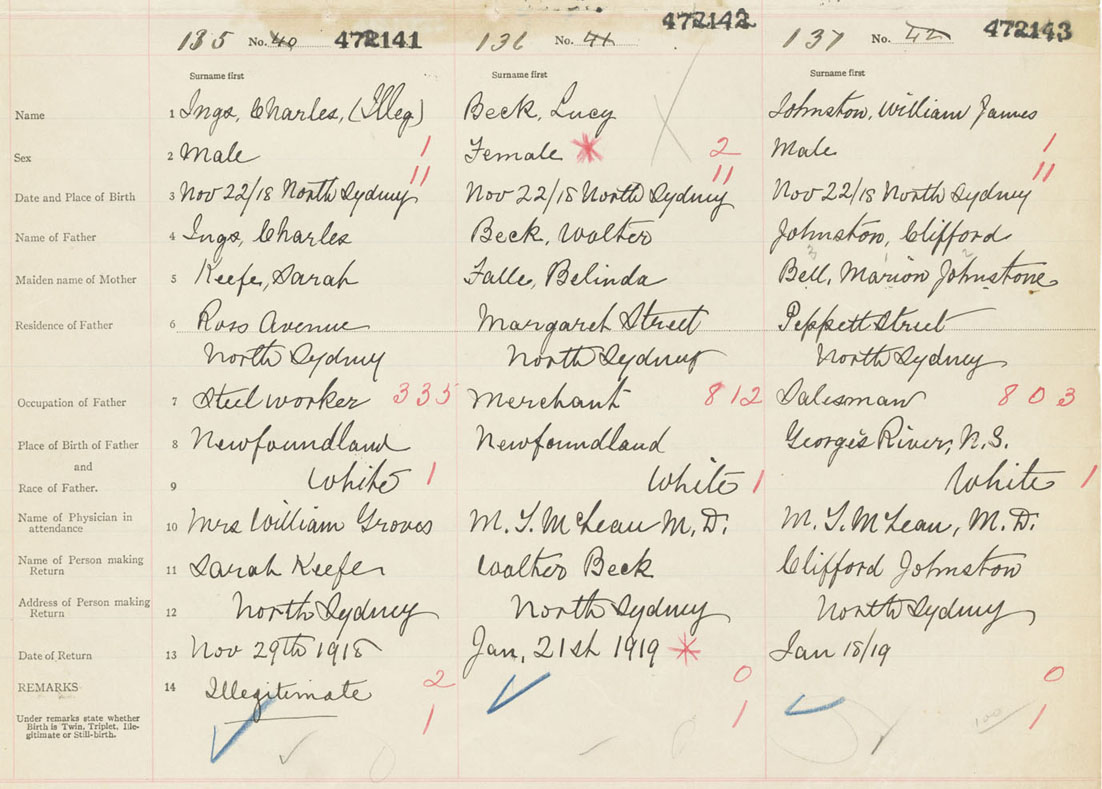 135 No. 40 472141 136 No. 41 472142 137 No. 42 472143
Surname first Surname first Surname first
Name 1 Ings, Charles, (Illeg) Beck, Lucy Johnston, William James
Sex 2 Male 1 Female * 2 Male 1
11 11 11
Date and Place of Birth 3 Nov 22/18 North Sydney Nov 22/18 North Sydney Nov 22/18 North Sydney
Name of Father 4 Ings, Charles Beck, Walter Johnston, Clifford
Maiden name of Mother 5 Keefe, Sarah Falle, Belinda Bell, Marion Johnstone
Residence of Father 6 Ross Avenue Margaret Street Peppett Street
North Sydney North Sydney North Sydney
Occupation of Father 7 Steel worker 335 Merchant 812 Salesman 803
Place of Birth of Father 8 Newfoundland Newfoundland Georges River, N.S.
and
Race of Father. 9 White 1 White 1 White 1
Name of Physician in attendance 10 Mrs William Groves M. T. McLean M.D. M. T. McLean, M.D.
Name of Person making Return 11 Sarah Keefe Walter Beck Clifford Johnston
Address of Person making Return 12 North Sydney North Sydney North Sydney
Date of Return 13 Nov 29th 1918 Jan, 21st 1919 * Jan 18/19
REMARKS 14 Illegitimate 2 0 0
Under remarks state whether
Birth is Twin, Triplet, Ille-
gitimate or Still-birth.
1 1 100 1